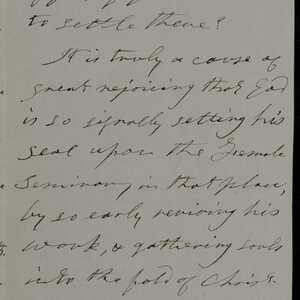 to settle there?
It is truly a cause of
great rejoicing that God
is so signally setting his
seal upon the Female
Seminary in that place,
by so early reviving his
work, & gathering souls
into the fold of Christ.